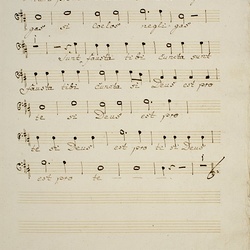 gas si coelos negligas
Sunt fausta tibi cuncta sunt
fausta tibi cuncta si Deus est pro
te si Deus est pro
te si Deus est pro te si Deus
est pro te